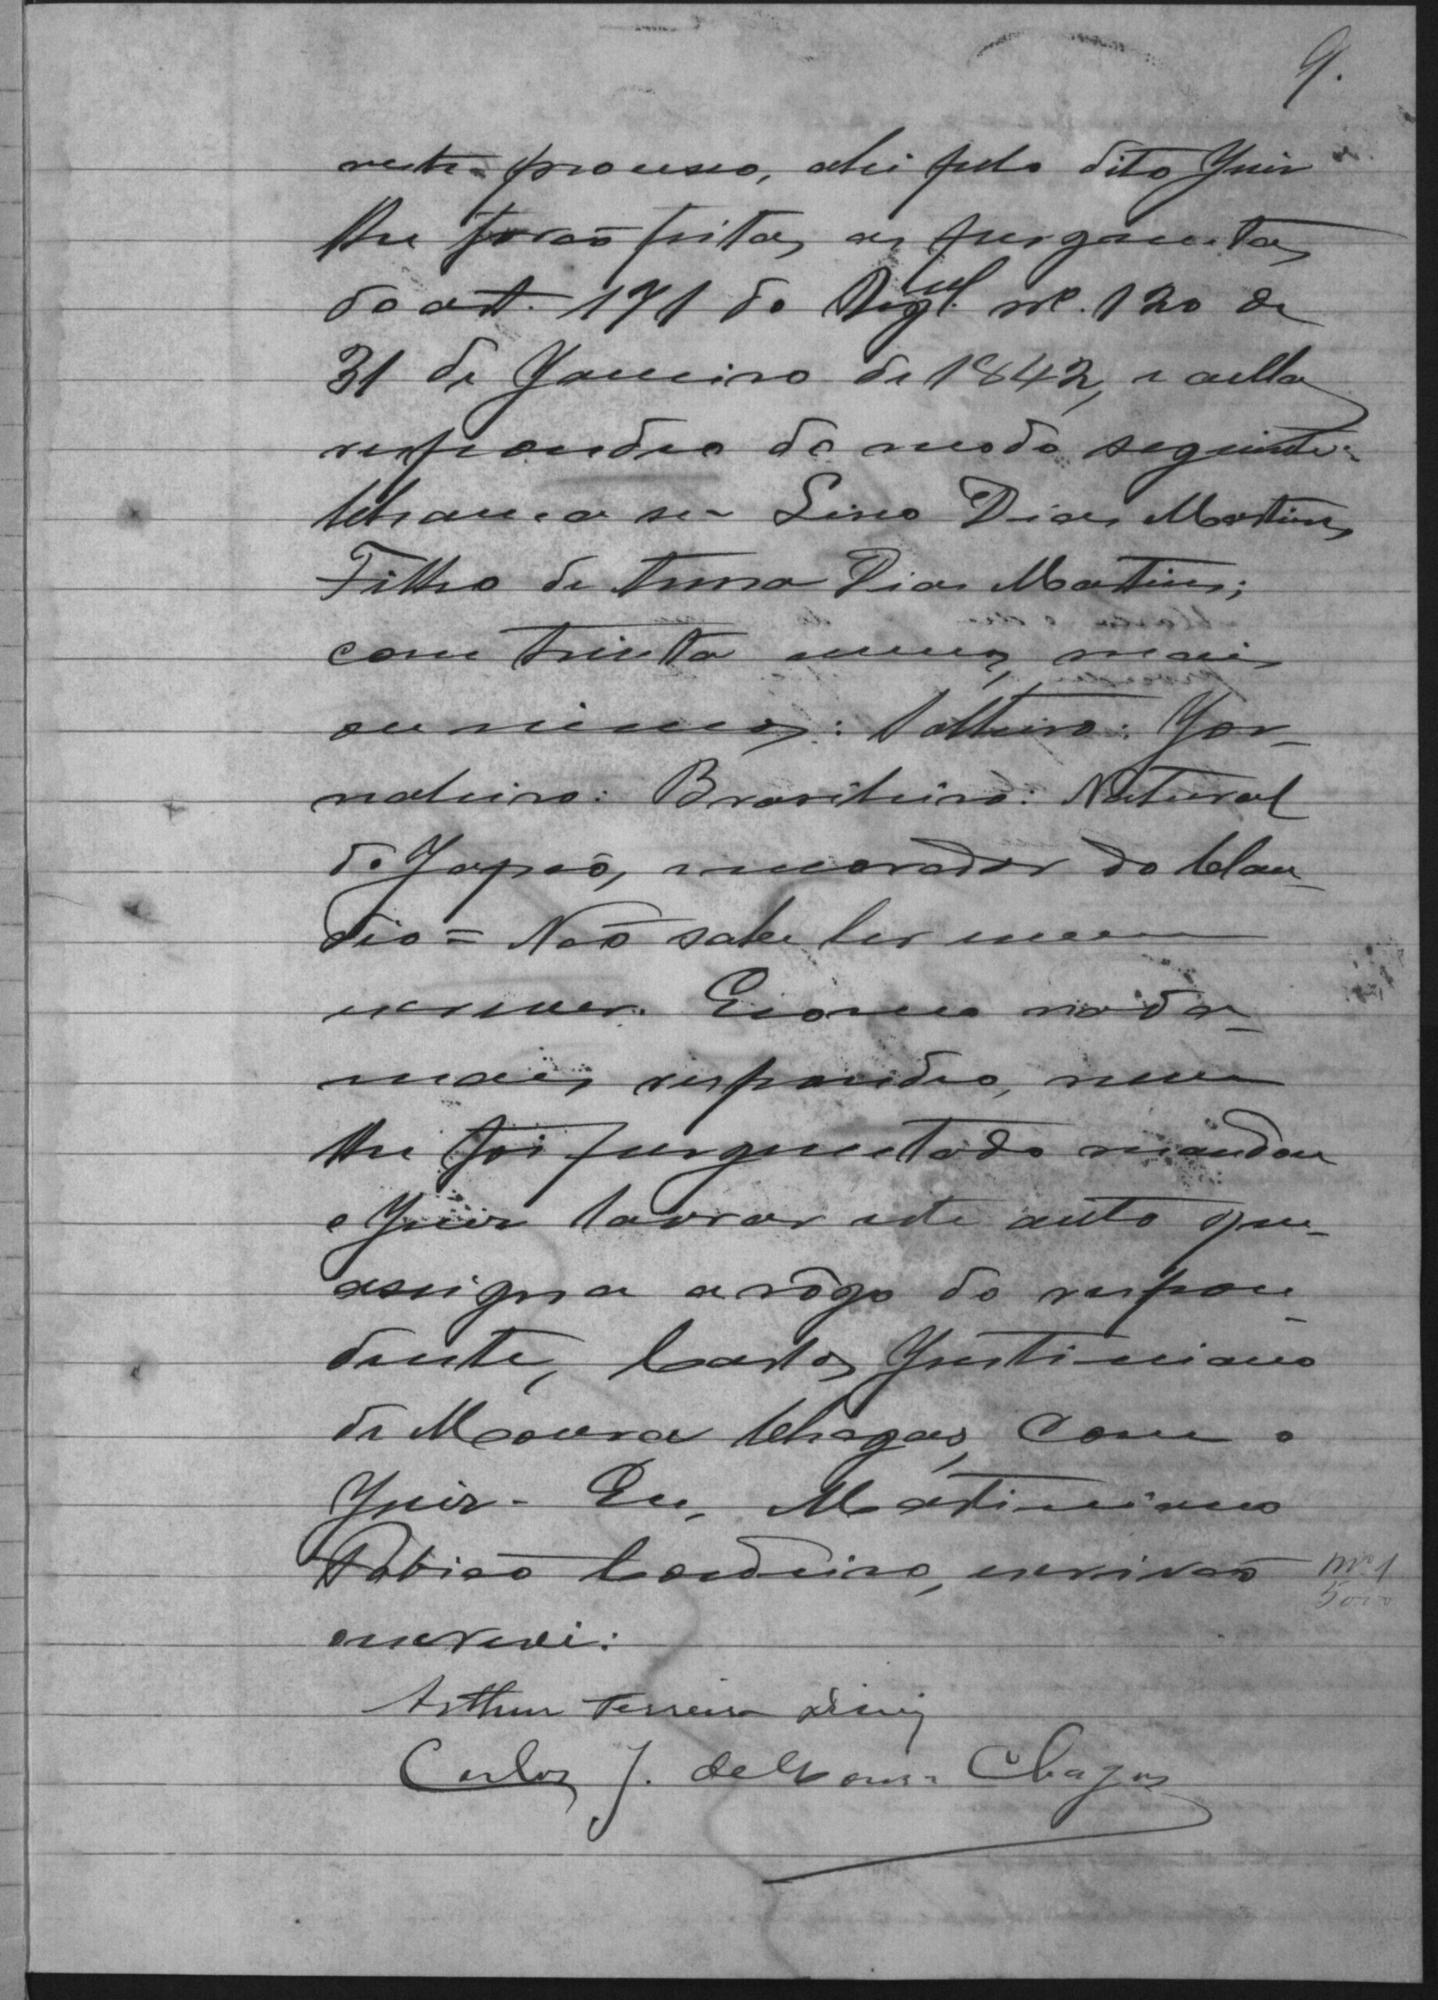 9.
neste processo, ahi pelo dito Juiz
lhe forão feitas as perguntas
do art. 171 do Regul. nº. 120 de
31 de Janeiro de 1842, e a ellas
respondeo do modo seguinte:
Chamar-se Lino Dias Martins,
Filho de Dias Martins;
com trinta annos, mais
ou menos: Solteiro: Jor-
naleiro: Brasileiro: Natural
do Japão, morador do Clau-
dio = Não sabe ler nem
escrever. E como nada
mais respondeo, nem
lhe foi perguntado mandou
o Juiz lavrar este auto que
assigna a rôgo do respon-
dente, Carlos Justiniano
de Moura Chagas, com o
Juiz. Eu, Martiniano
Cordeiro, escrivão
escrevi:
Arthur Ferreira Diniz
Carlos J. de Moura Chagas